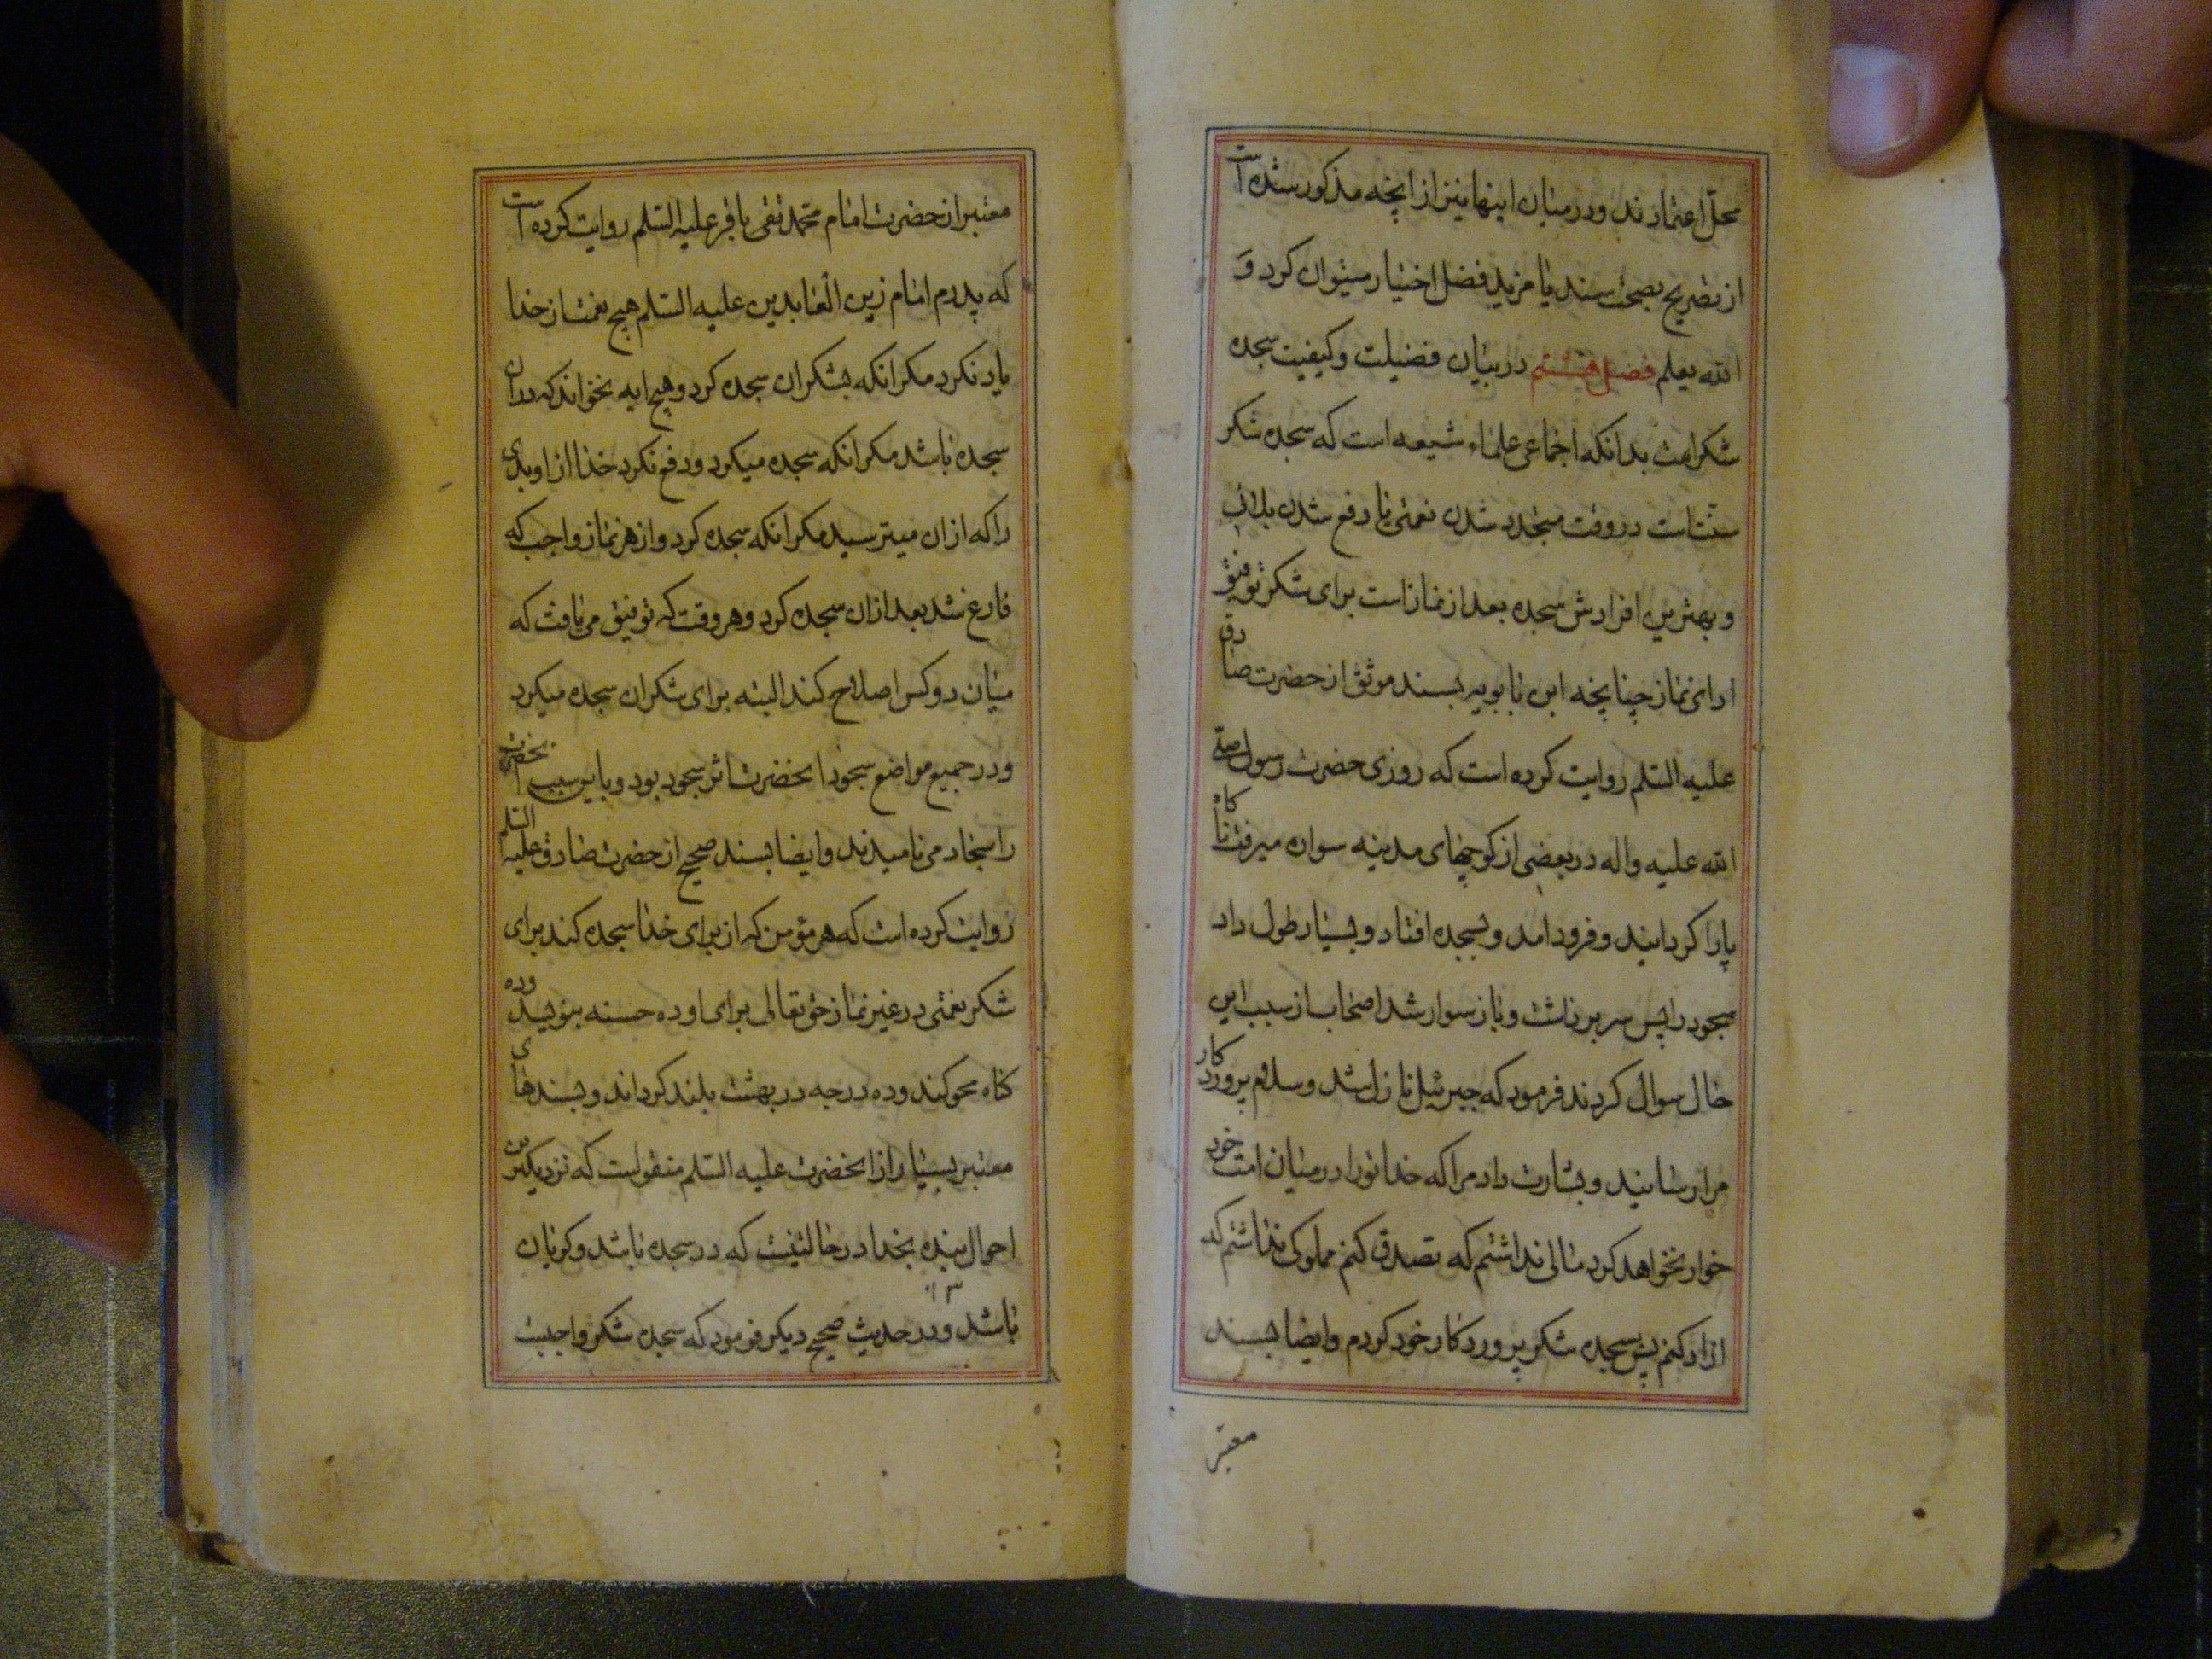 محل اعتمادند و در میان اینها نیز از انچه مذکور شده است
از تصریح بصحت سند یا مزید فضل اختیار میتوان کرد و
الله یعلم فصل هشتم در بیان فضیلت و کیفیت سجده
شکر است بدانکه اجماعی علماء شیعه است که سجده شکر
سنت است در وقت متجدد شدن نعمتی یا دفع شدن بلائی
و بهترین افرادش سجده بعد از نماز است برای شکر توفیق
ادای نماز چنانچه ابن بابویه بسند موثق از حضرت صادق
علیه السلم روایت کرده است که روزی حضرت رسول صلی
الله علیه واله در بعضی از کوچهای مدینه سواره میرفت ناکاه
پارا کردانید و فرود امد و بسجده افتاد و بسیار طول داد
سجود را پس سر برداشت و باز سوار شد اصحاب از سبب این
حال سوال کردند فرمود که جبرئیل نازل شد و سلام پروردکار
مرا رسانید و بشارت داد مرا که خدا تورا در میان امت خود
خوار نخواهد کرد مالی نداشتم که تصدق کنم مملوکی نداشتم که
ازاد کنم پس سجده شکر پروردکار خود کردم و ایضا بسند
معتبر
معتبر از حضرت امام محمد تقی باقر علیه السلم روایت کرده است
که پدرم امام زین العابدین علیه السلم هیچ نعمت از خدا
یاد نکرد مکر انکه بشکر ان سجده کرد و هیچ ایه نخواند که دران
سجده باشد مکر انکه سجده میکرد و دفع نکرد خدا از او بدی
را که ازان میترسید مکر انکه سجده کرد و از هر نماز واجب که
فارغ شد بعد ازان سجده کرد و هر وقت که توفیق می یافت که
میان دو کس اصلاح کند البته برای شکر ان سجده میکرد
و در جمیع مواضع سجود انحضرت اثر سجود بود و باین سبب انحضرت
را سجاد می نامیدند و ایضا بسند صحیح از حضرت صادق علیه السلم
روایت کرده است که هر مؤمن که از برای خدا سجده کند برای
شکر نعمتی در غیر نماز حق تعالی برای او ده حسنه بنویسد وده
کناه محو کند و ده درجه در بهشت بلند کرداند و بسندهای
معتبر بسیار از انحضرت علیه السلم منقولست که نزدیکترین
احوال بنده بخدا در حالتیست که در سجده باشد و کریان
باشد و در حدیث صحیح دیکر فرمود که سجده شکر واجبست